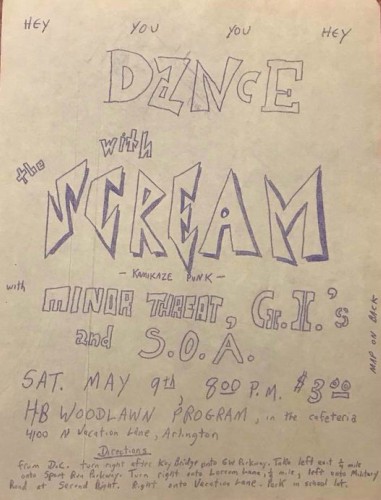 HEY YOU YOU HEY
DANCE
with
the
SCREAM
- KAMIKAZE PUNK -
with MINOR THREAT, G.I.'s
and S.O.A.
SAT. MAY 9th, 8:00 P.M. $3.00
HB WOODLAWN PROGRAM, in the cafeteria
4100 N Vacation Lane, Arlington
MAP ON BACK
Directions
From D.C. turn right after Key Bridge onto GW Parkway. Take left exit ½ mile
onto Spout Run Parkway. Turn right onto Lorcom Lane, ½ mile, left onto Military
Road at Second light. Right onto Vacation Lane. Park in school lot.